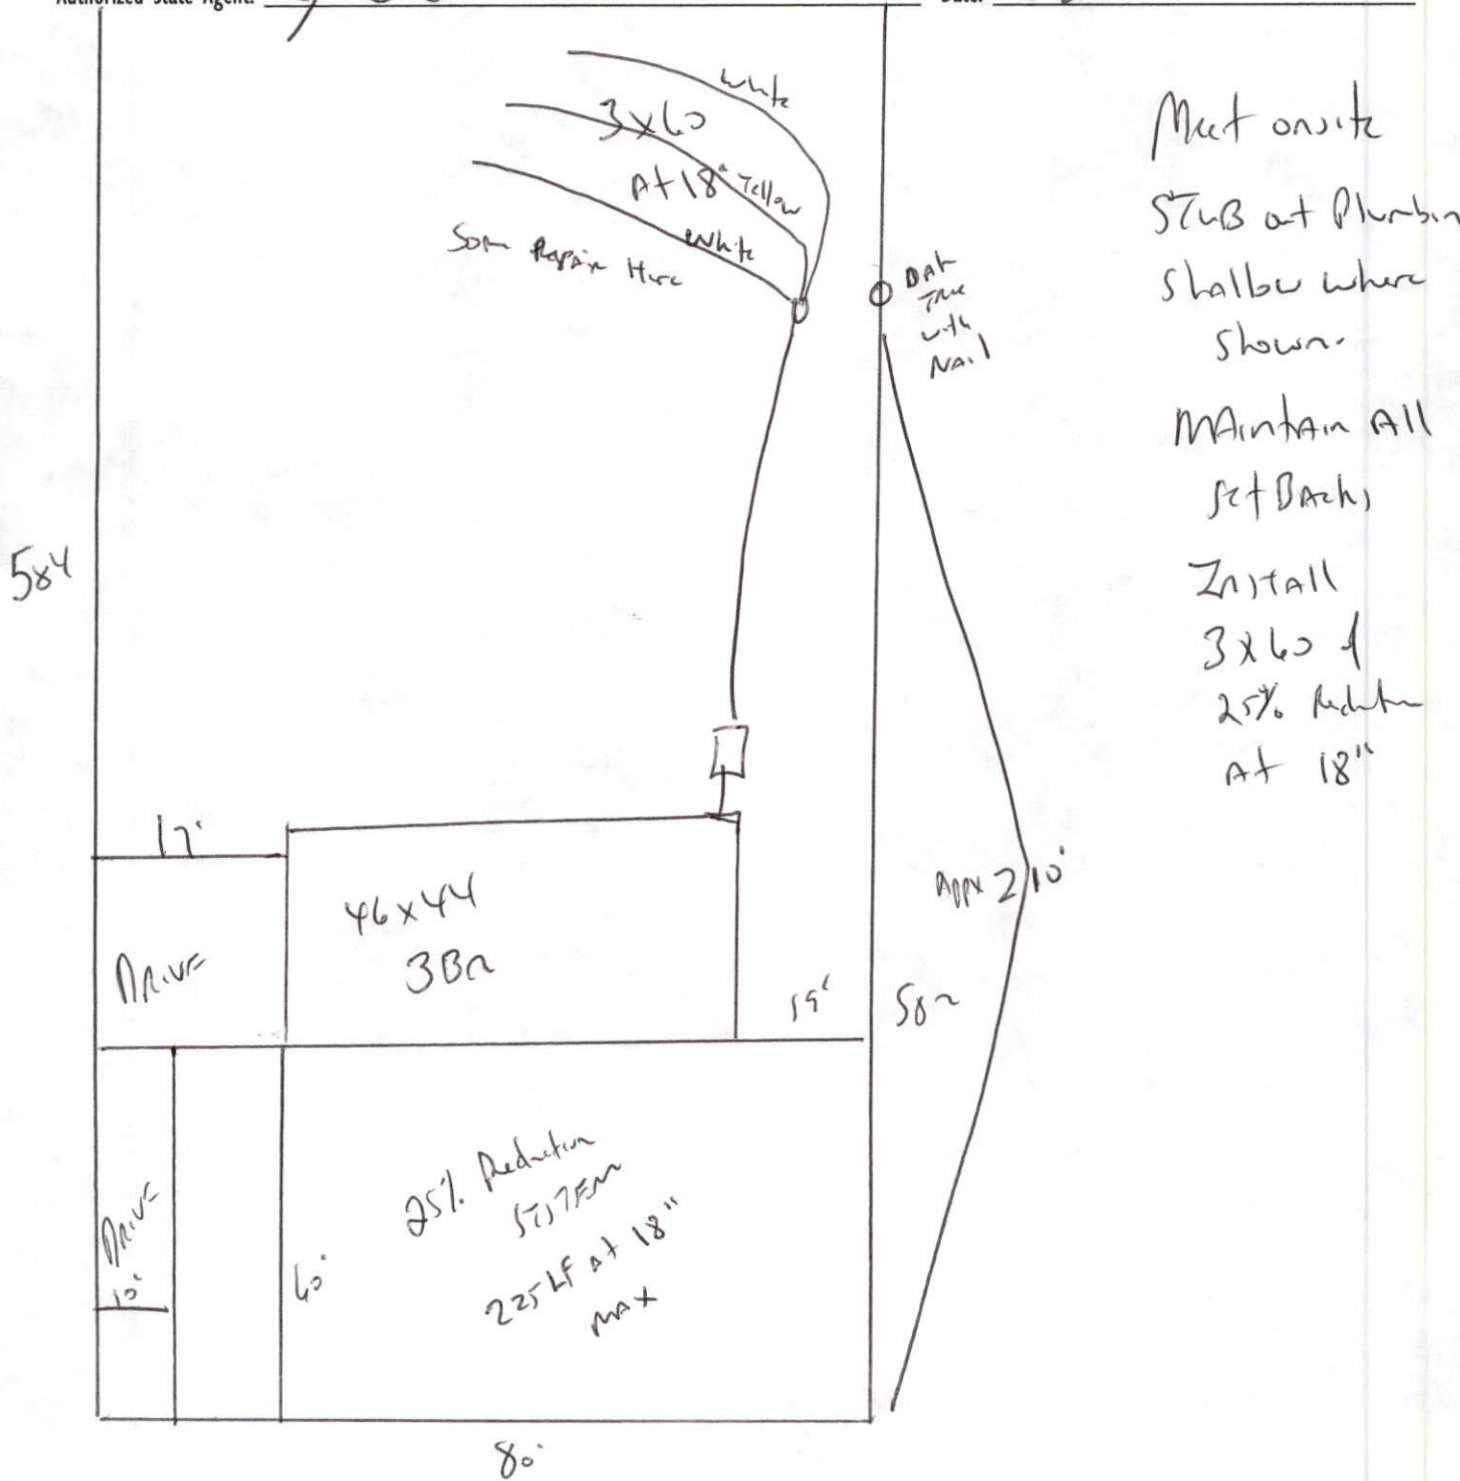 Authorized State Agent:
Date:
White
3x60
At 18" Yellow
White
Some Repair Here
Meet onsite
STuB out Plumbin
Shallow where
Shown.
MAintAin All
SetBacks
InstAll
3x60 of
25% Reduction
At 18"
OAK
Tree
with
NAil
584
17'
46x44
3Br
DRIVE
19'
Appx 210'
DRIVE
10'
60'
25% Reduction
SYSTEM
225 LF At 18"
MAX
80'